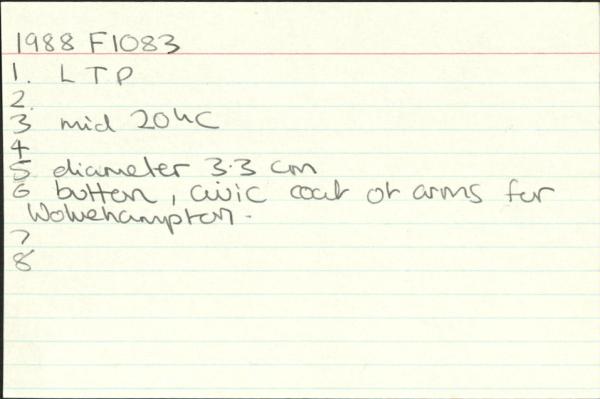 1988 F1083
1. LTP
2.
3 mid 20thC
4
5 diameter 3.3 cm
6 button, civic coat of arms for
Wolvehampton.
7
8